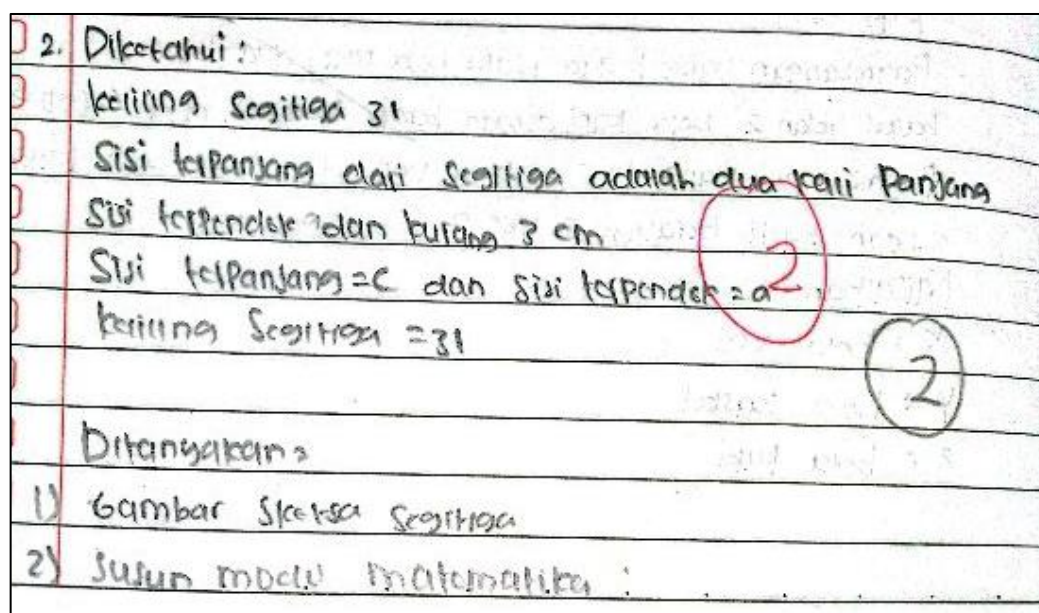 2. Diketahui :
keliling segitiga 31
Sisi terpanjang dari segitiga adalah dua kali Panjang
Sisi terpendek dan kurang 3 cm
2
Sisi terpanjang = c dan sisi terpendek = a
keliling segitiga = 31
2
Ditanyakan =
1) Gambar sketsa segitiga
2) Susun model matematika :